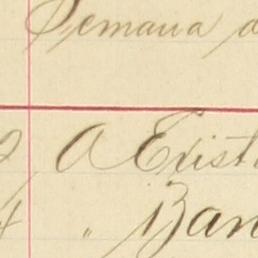 Semana d
2 A Exist
4 " Ban